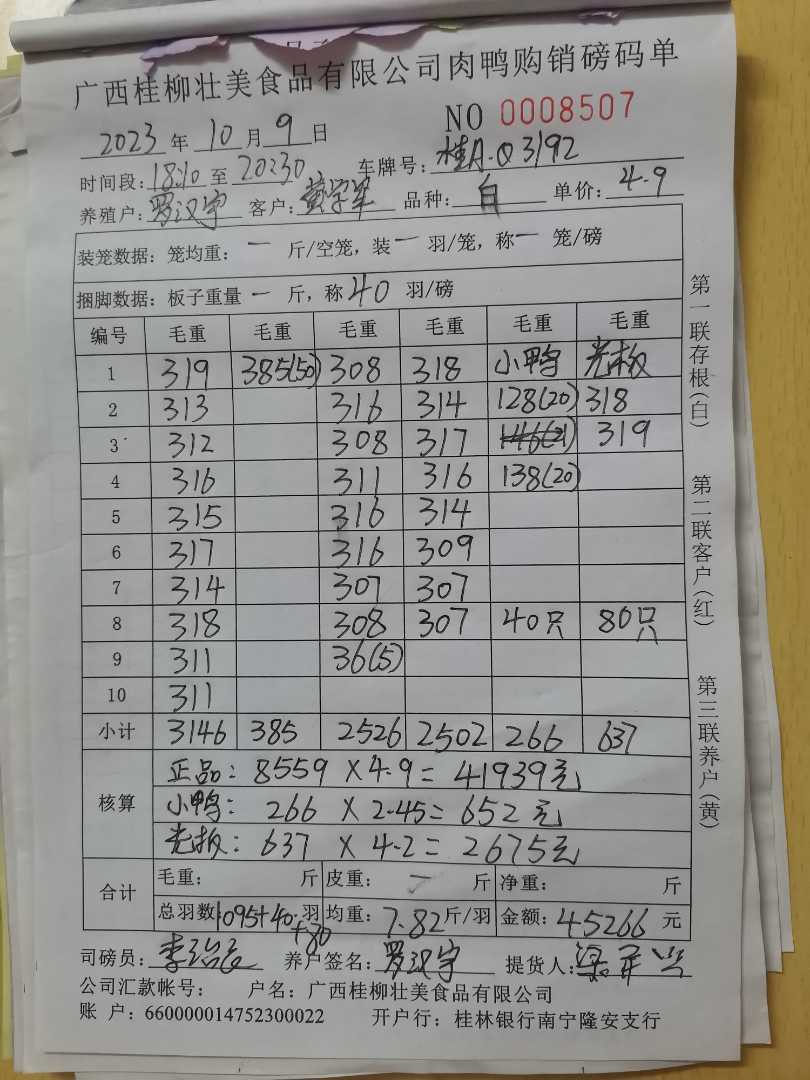 广西桂柳壮美食品有限公司肉鸭购销磅码单
NO 0008507
2023 年 10 月 9 日
时间段: 18:10 至 20:30 车牌号: 桂A·Q3192
养殖户: 罗汉宇 客户: 黄字军 品种: 白 单价: 4.9
装笼数据: 笼均重: 一 斤/空笼, 装 一 羽/笼, 称 一 笼/磅
捆脚数据: 板子重量 一 斤, 称 40 羽/磅
编号 毛重 毛重 毛重 毛重 毛重 毛重
1 319 385(50) 308 318 小鸭 光板
2 313 316 314 128(20) 318
3 312 308 317 146(21) 319
4 316 311 316 138(20)
5 315 316 314
6 317 316 309
7 314 307 307
8 318 308 307 40只 80只
9 311 36(5)
10 311
小计 3146 385 2526 2502 266 637
核算 正品: 8559 X 4.9 = 41939元
小鸭: 266 X 2.45 = 652元
光板: 637 X 4.2 = 2675元
合计 毛重: 斤 皮重: 一 斤 净重: 斤
总羽数 1095+40+80 羽 均重: 7.82 斤/羽 金额: 45266 元
司磅员: 李 养户签名: 罗汉宇 提货人: 梁
公司汇款帐号: 户名: 广西桂柳壮美食品有限公司
账 户: 660000014752300022 开户行: 桂林银行南宁隆安支行
第一联存根(白)
第二联客户(红)
第三联养户(黄)